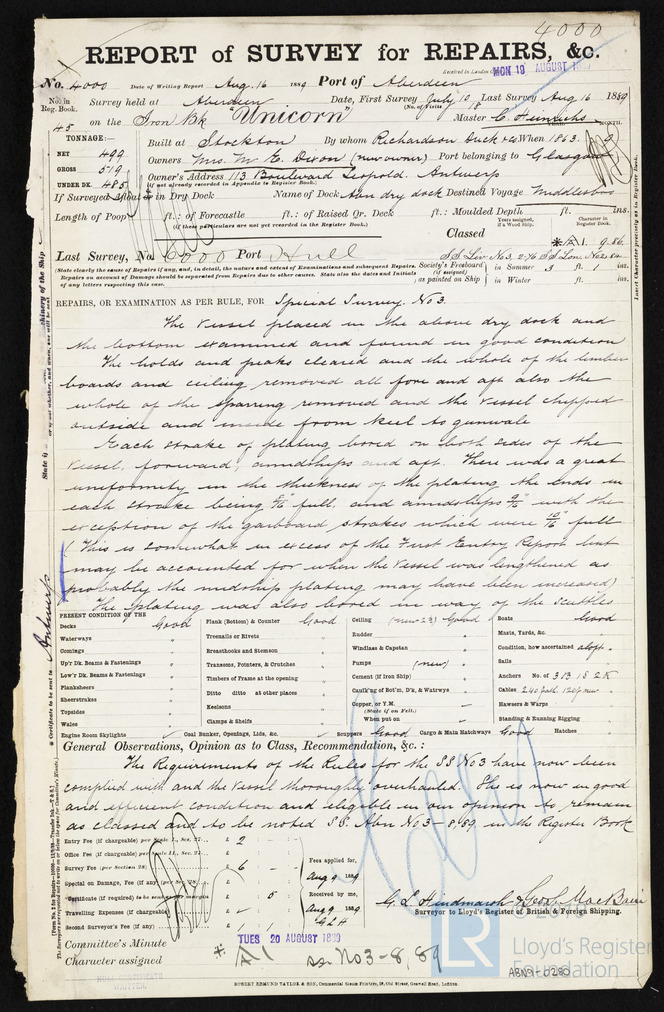 4000
REPORT of SURVEY for REPAIRS, &c.
Received in London MON 19 AUGUST 1889
No. 4000 Date of Writing Report Aug. 16 1889 Port of Aberdeen
No. in Reg. Book. Survey held at Aberdeen Date, First Survey July 10 Last Survey Aug 16 1889
(No. of Visits 18)
45 on the Iron Bk "Unicorn" Master C. Heinrichs
TONNAGE:—
NET 499
GROSS 519
UNDER DK. 485
Built at Stockton By whom Richardson Duck & Co When 1863
Owners Mrs. M. E. Dixon (new owner) Port belonging to Glasgow
Owner's Address 113 Boulevard Leopold. Antwerp
(if not already recorded in Appendix to Register Book.)
If Surveyed Afloat or in Dry Dock Name of Dock Abn dry dock Destined Voyage Middlesboro
Length of Poop ft.: of Forecastle ft.: of Raised Qr. Deck ft.: Moulded Depth ft. ins.
(if these particulars are not yet recorded in the Register Book.)
Years assigned, if a Wood Ship. Character in Register Book.
Classed A 1. 9.86.
Last Survey, No. 6000 Port Hull
SS Lev. No 3. 2-76 SS Lon. No 2
(State clearly the cause of Repairs if any, and, in detail, the nature and extent of Examinations and subsequent Repairs.
Repairs on account of Damage should be separated from Repairs due to other causes. State also the dates and Initials
of any letters respecting this case.
Society's Freeboard (if assigned) as painted on Ship in Summer 3 ft. 1 ins.
in Winter ft. ins.
REPAIRS, OR EXAMINATION AS PER RULE, FOR Special Survey No 3.
The vessel placed in the above dry dock and
the bottom examined and found in good condition
The holds and peaks cleared and the whole of the limber
boards and ceiling removed all fore and aft also the
whole of the sparring removed and the vessel chipped
outside and inside from keel to gunwale
Each strake of plating bored on both sides of the
vessel, forward, amidships and aft. There was a great
uniformity in the thickness of the plating, the ends in
each strake being 8/16 full, and amidships 9/16" with the
exception of the garboard strakes which were 10/16 full
(This is somewhat in excess of the First Entry Report but
may be accounted for when the vessel was lengthened as
probably the midship plating may have been increased)
The plating was also bored in way of the scuttles
PRESENT CONDITION OF THE
Decks Good
Waterways "
Comings "
Up'r Dk. Beams & Fastenings "
Low'r Dk. Beams & Fastenings "
Planksheers "
Sheerstrakes "
Topsides "
Wales "
Engine Room Skylights
Plank (Bottom) & Counter Good
Treenails or Rivets "
Breasthooks and Stemson "
Transoms, Pointers, & Crutches "
Timbers of Frame at the opening "
Ditto ditto at other places "
Keelsons "
Clamps & Shelfs "
Coal Bunker, Openings, Lids, &c.
Ceiling Good
Rudder "
Windlass & Capstan "
Pumps (new) "
Cement (if Iron Ship) "
Caulk'g of Bot'm, D'k, & Watrwys "
Copper, or Y.M. (State if on Felt.)
When put on
Scuppers Good Cargo & Main Hatchways Good
Boats Good
Masts, Yards, &c. "
Condition, how ascertained aloft
Sails "
Anchors No. of 3 B 1 S 2 K
Cables
Hawsers & Warps "
Standing & Running Rigging "
Hatches "
General Observations, Opinion as to Class, Recommendation, &c.:
The Requirements of the Rules for the SS No 3 have now been
complied with and the vessel thoroughly overhauled. She is now in good
and efficient condition and eligible in our opinion to remain
as classed and to be noted S.S. Abn No 3 - 8/89. in the Register Book
Entry Fee (if chargeable) per Scale I., Sec. 27. £ 2
Office Fee (if chargeable) per Scale II., Sec. 27. £
Survey Fee (per Section 28) £ 6
Special or Damage Fee (if any)
Certificate (if required) 5
Travelling Expenses (if chargeable) £
Second Surveyor's Fee (if any) £ 1 1
Fees applied for, Aug 9 1889
Received by me, Aug 9 1889
G. L. Hindmarsh & Geo. L. MacBain
Surveyor to Lloyd's Register of British & Foreign Shipping.
Committee's Minute TUES 20 AUGUST 1889
Character assigned A 1 ss. No 3 - 8, 89
HULL CERTIFICATE WRITTEN.
ROBERT EDMUND TAYLOR & SON, Commercial Steam Printers, 19, Old Street, Goswell Road, London.
LR Lloyd's Register Foundation
© 2019
ABN91-0280
Certificate to be sent to Antwerp